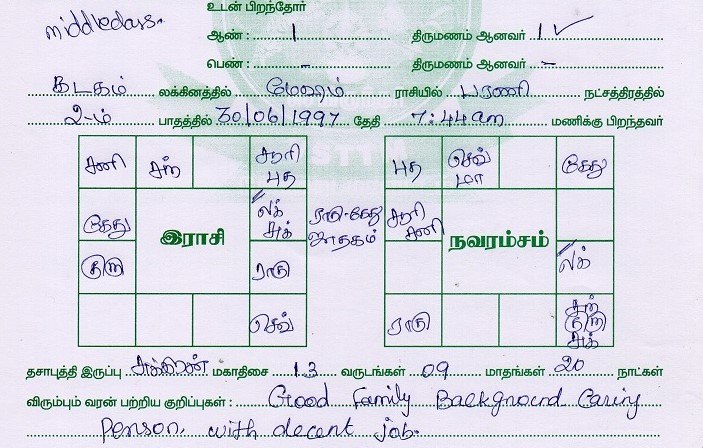 உடன் பிறந்தோர்
middleclass.
ஆண் : 1 திருமணம் ஆனவர் 1 ✓
பெண் : - திருமணம் ஆனவர் -
கடகம் லக்கினத்தில் மேஷம் ராசியில் பரணி நட்சத்திரத்தில்
2-ம் பாதத்தில் 30/06/1997 தேதி 7:44am மணிக்கு பிறந்தவர்
சனி சந் சூரி புத
கேது லக் சுக்
குரு ராகு
செவ்
இராசி
ராகு-கேது ஜாதகம்
புத செவ் மா கேது
சூரி சனி
லக்
ராகு சந் குரு சுக்
நவரம்சம்
தசாபுத்தி இருப்பு சுக்ரன் மகாதிசை 13 வருடங்கள் 09 மாதங்கள் 20 நாட்கள்
விரும்பும் வரன் பற்றிய குறிப்புகள் : Good Family Background Caring
Person, with decent job.